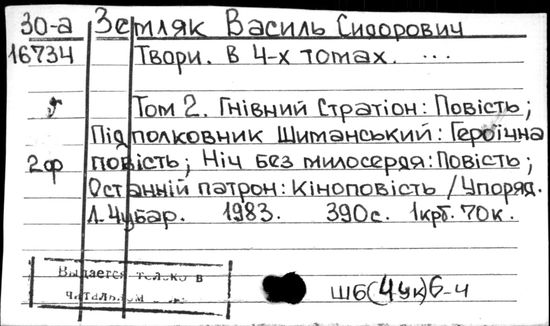 30-а Земляк Василь Сидорович
16734 Твори. В 4-х томах. ...
5 Том 2. Гнівний Стратіон: Повість;
Підполковник Шиманський: Героїчна
2ф повість; Ніч без милосердя: Повість;
Останній патрон: Кіноповість / Упоряд.
Л. Чубар. 1983. 390с. 1крб. 70к.
Выдается только в
читальном
Ш6(4Ук)6-4